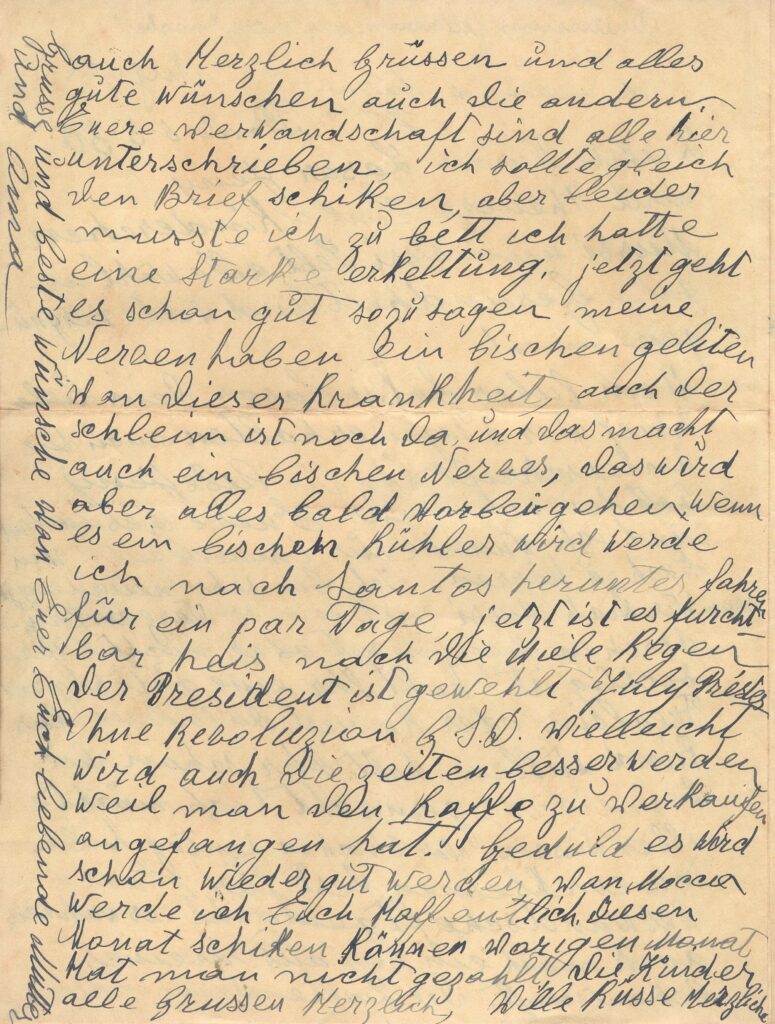 auch Herzlich Grüssen und alles
gute wünschen auch die andern,
Euere verwandschaft sind alle hier
unterschrieben, ich sollte gleich
den Brief schiken, aber leider
musste ich zu bett ich hatte
eine Starke erkeltung, jetzt geht
es schan gut sozusagen meine
Nerven haben ein bischen geliten
van dieser Krankheit, auch der
schleim ist noch da, und das macht
auch ein bischen Nerves, das wird
aber alles bald varbei gehen, Wenn
es ein bischen Kühler wird werde
ich nach Santos herunter fahren
für ein par Tage, jetzt ist es furcht-
bar heis nach die viele Regen
Der President ist gewehlt July Préstes
Ohne Revoluzion G. S. D. vielleicht
wird auch die zeiten besser werden
weil man den Kaffe zu verkaufen
angefangen hat. Geduld es wird
schan wieder gut werden, van Mocca
werde ich Euch Hoffentlich diesen
Monat schiken Kännen varigen Monat
Hat man nicht gezahlt die Kinder
alle Grussen Herzlich, Ville Küsse Herzliche
Grusse und beste wünsche van Euer Euch liebende Mutter
und Anna